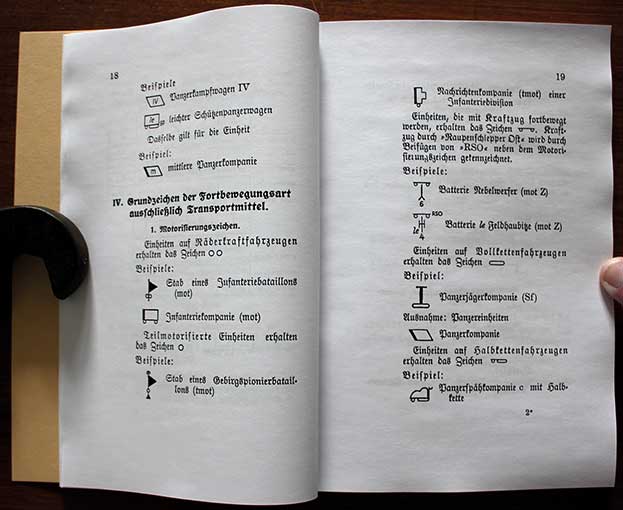 18
Beispiele
IV Panzerkampfwagen IV
le leichter Schützenpanzerwagen
Dasselbe gilt für die Einheit
Beispiel:
m mittlere Panzerkompanie
IV. Grundzeichen der Fortbewegungsart
ausschließlich Transportmittel.
1. Motorisierungszeichen.
Einheiten auf Räderkraftfahrzeugen
erhalten das Zeichen
Beispiele:
Stab eines Infanteriebataillons
(mot)
Infanteriekompanie (mot)
Teilmotorisierte Einheiten erhalten
das Zeichen
Beispiele:
Stab eines Gebirgspionierbatail-
lons (tmot)
19
Nachrichtenkompanie (tmot) einer
Infanteriedivision
Einheiten, die mit Kraftzug fortbewegt
werden, erhalten das Zeichen . Kraft-
zug durch »Raupenschlepper Ost« wird durch
Beifügen von »RSO« neben dem Motori-
sierungszeichen gekennzeichnet.
Beispiele:
Batterie Nebelwerfer (mot Z)
6
RSO
Batterie le Feldhaubitze (mot Z)
le
4
Einheiten auf Vollkettenfahrzeugen
erhalten das Zeichen
Beispiel:
Panzerjägerkompanie (Sf)
Ausnahme: Panzereinheiten
Panzerkompanie
Einheiten auf Halbkettenfahrzeugen
erhalten das Zeichen
Beispiel:
Panzerspähkompanie c mit Halb-
kette
2*